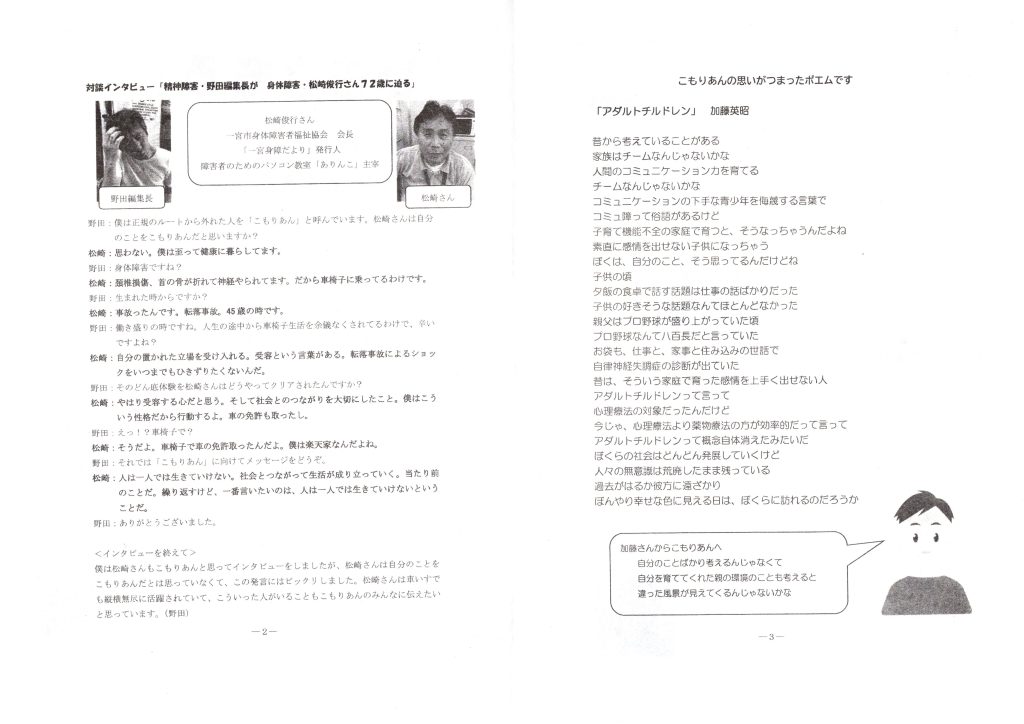 対談インタビュー「精神障害・野田編集長が　身体障害・松崎俊行さん７２歳に迫る」
松崎俊行さん
一宮市身体障害者福祉協会　会長
「一宮身障だより」発行人
障害者のためのパソコン教室「ありんこ」主宰
野田編集長
松崎さん
野田：僕は正規のルートから外れた人を「こもりあん」と呼んでいます。松崎さんは自分
のことをこもりあんだと思いますか？
松崎：思わない。僕は至って健康に暮らしてます。
野田：身体障害ですね？
松崎：頚椎損傷、首の骨が折れて神経やられてます。だから車椅子に乗ってるわけです。
野田：生まれた時からですか？
松崎：事故ったんです。転落事故。45歳の時です。
野田：働き盛りの時ですね。人生の途中から車椅子生活を余儀なくされてるわけで、辛い
ですよね？
松崎：自分の置かれた立場を受け入れる。受容という言葉がある。転落事故によるショッ
クをいつまでもひきずりたくないんだ。
野田：そのどん底体験を松崎さんはどうやってクリアされたんですか？
松崎：やはり受容する心だと思う。そして社会とのつながりを大切にしたこと。僕はこう
いう性格だから行動するよ。車の免許も取ったし。
野田：えっ！？車椅子で？
松崎：そうだよ。車椅子で車の免許取ったんだよ。僕は楽天家なんだよね。
野田：それでは「こもりあん」に向けてメッセージをどうぞ。
松崎：人は一人では生きていけない。社会とつながって生活が成り立っていく。当たり前
のことだ。繰り返すけど、一番言いたいのは、人は一人では生きていけないという
ことだ。
野田：ありがとうございました。
＜インタビューを終えて＞
僕は松崎さんもこもりあんと思ってインタビューをしましたが、松崎さんは自分のことを
こもりあんだとは思っていなくて、この発言にはビックリしました。松崎さんは車いすで
も縦横無尽に活躍されていて、こういった人がいることもこもりあんのみんなに伝えたい
と思っています。（野田）
―２―
こもりあんの思いがつまったポエムです
「アダルトチルドレン」　加藤英昭
昔から考えていることがある
家族はチームなんじゃないかな
人間のコミュニケーション力を育てる
チームなんじゃないかな
コミュニケーションの下手な青少年を侮蔑する言葉で
コミュ障って俗語があるけど
子育て機能不全の家庭で育つと、そうなっちゃうんだよね
素直に感情を出せない子供になっちゃう
ぼくは、自分のこと、そう思ってるんだけどね
子供の頃
夕飯の食卓で話す話題は仕事の話ばかりだった
子供の好きそうな話題なんてほとんどなかった
親父はプロ野球が盛り上がっていた頃
プロ野球なんて八百長だと言っていた
お袋も、仕事と、家事と住み込みの世話で
自律神経失調症の診断が出ていた
昔は、そういう家庭で育った感情を上手く出せない人
アダルトチルドレンって言って
心理療法の対象だったんだけど
今じゃ、心理療法より薬物療法の方が効率的だって言って
アダルトチルドレンって概念自体消えたみたいだ
ぼくらの社会はどんどん発展していくけど
人々の無意識は荒廃したまま残っている
過去がはるか彼方に遠ざかり
ぼんやり幸せな色に見える日は、ぼくらに訪れるのだろうか
加藤さんからこもりあんへ
自分のことばかり考えるんじゃなくて
自分を育ててくれた親の環境のことも考えると
違った風景が見えてくるんじゃないかな
―３―